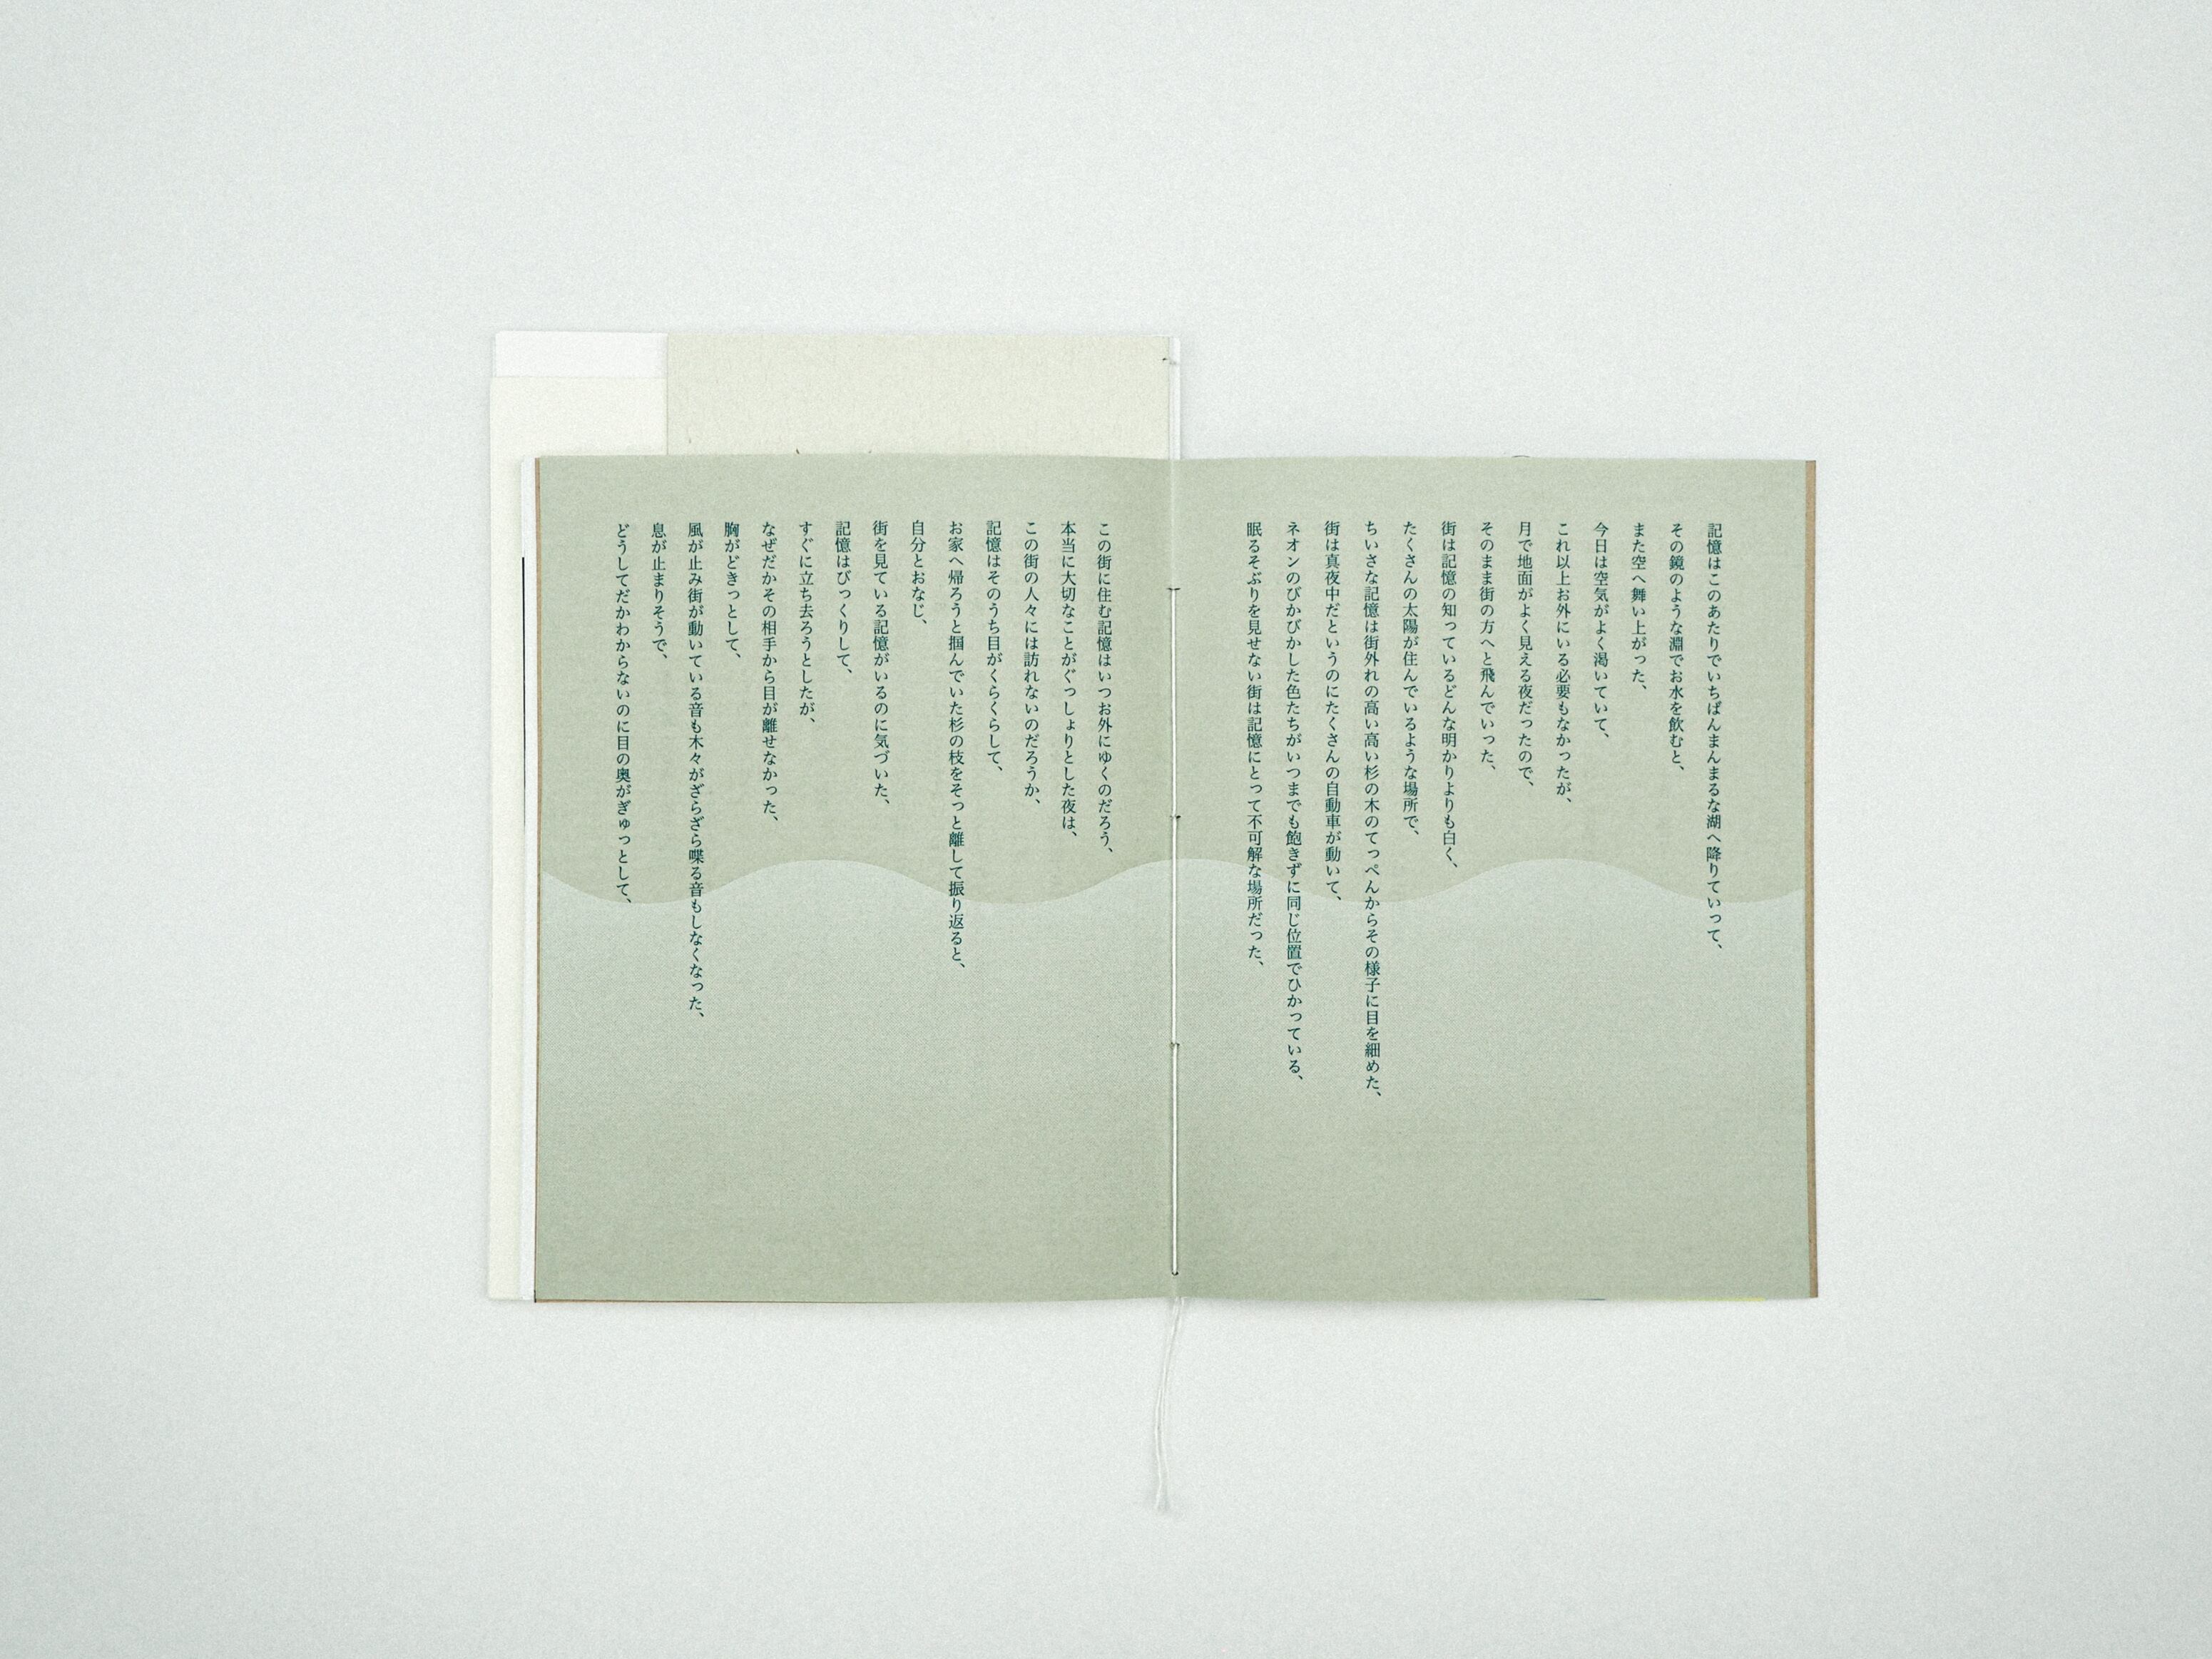 記憶はこのあたりでいちばんまんまるな湖へ降りていって、
その鏡のような淵でお水を飲むと、
また空へ舞い上がった、
今日は空気がよく渇いていて、
これ以上お外にいる必要もなかったが、
月で地面がよく見える夜だったので、
そのまま街の方へと飛んでいった、
街は記憶の知っているどんな明かりよりも白く、
たくさんの太陽が住んでいるような場所で、
ちいさな記憶は街外れの高い高い杉の木のてっぺんからその様子に目を細めた、
街は真夜中だというのにたくさんの自動車が動いて、
ネオンのぴかぴかした色たちがいつまでも飽きずに同じ位置でひかっている、
眠るそぶりを見せない街は記憶にとって不可解な場所だった、
この街に住む記憶はいつお外にゆくのだろう、
本当に大切なことがぐっしょりとした夜は、
この街の人々には訪れないのだろうか、
記憶はそのうち目がくらくらして、
お家へ帰ろうと掴んでいた杉の枝をそっと離して振り返ると、
自分とおなじ、
街を見ている記憶がいるのに気づいた、
記憶はびっくりして、
すぐに立ち去ろうとしたが、
なぜだかその相手から目が離せなかった、
胸がどきっとして、
風が止み街が動いている音も木々がざらざら喋る音もしなくなった、
息が止まりそうで、
どうしてだかわからないのに目の奥がぎゅっとして、